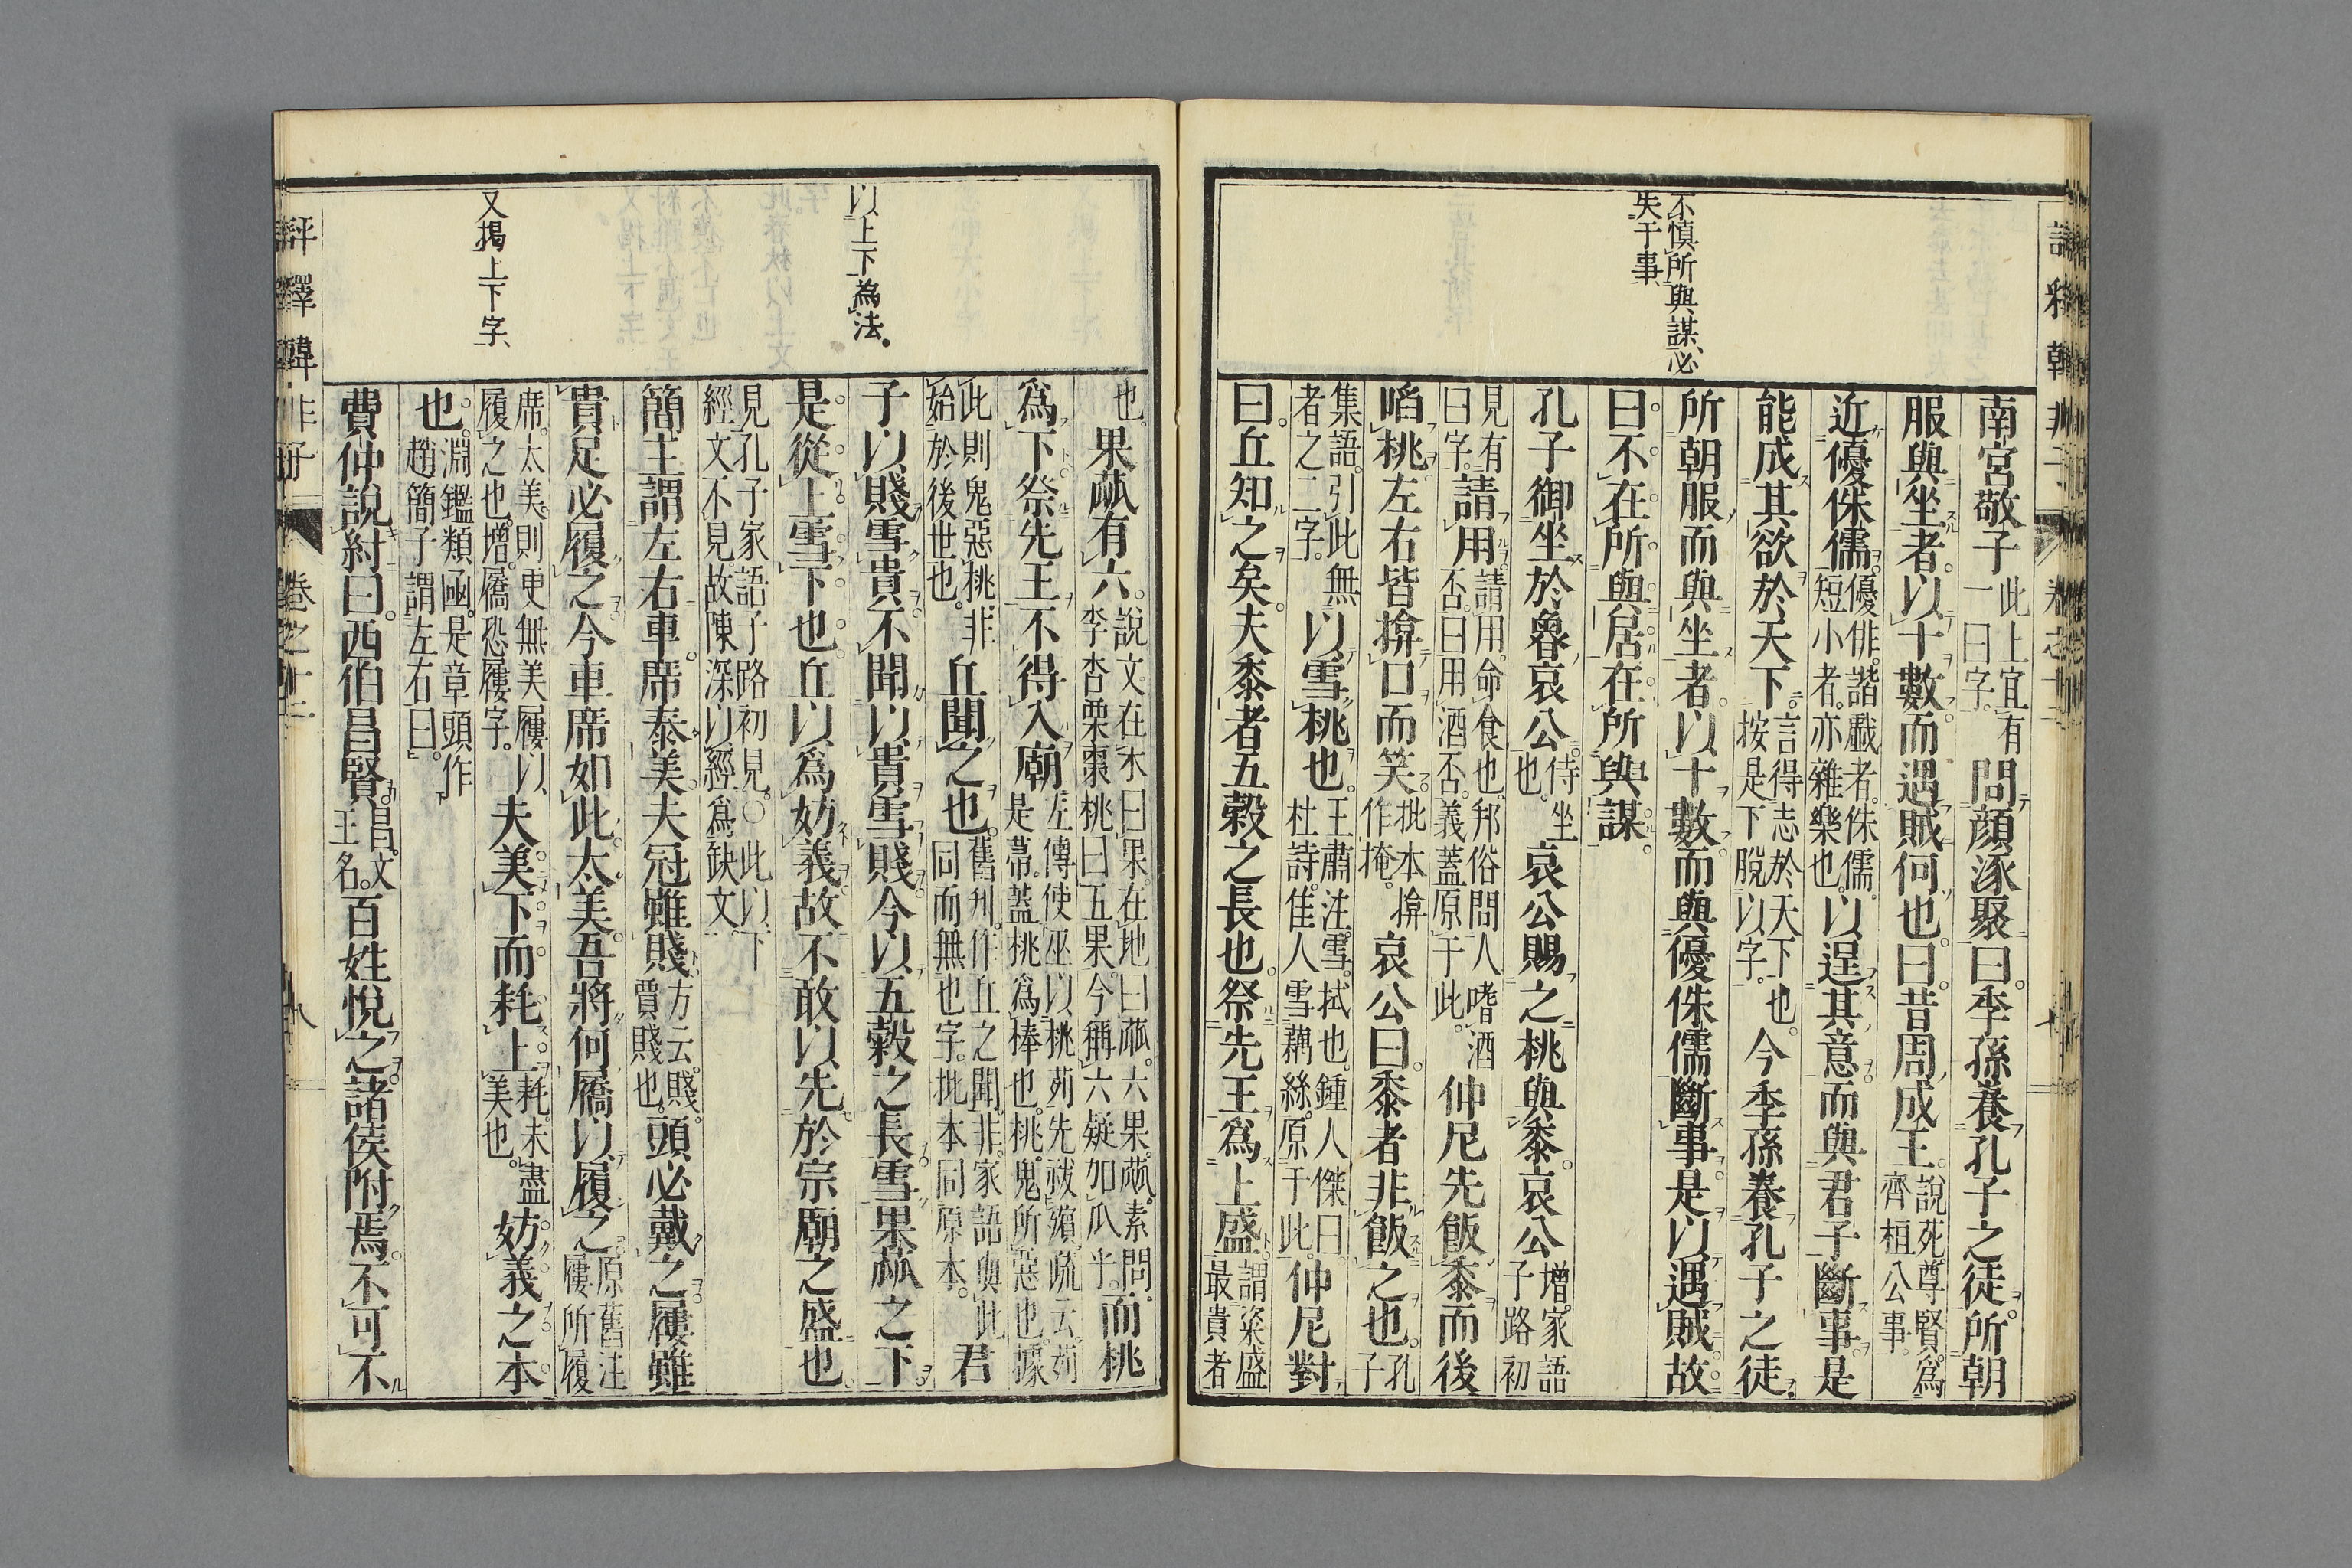 不慎所與謀、必
失于事、
南宮敬子此上宜有一曰字。問顏涿聚曰。季孫養孔子之徒。所朝
服與坐者。以十數而遇賊何也。曰。昔周成王說苑尊賢爲齊桓公事。
近優侏儒。優俳。諧戲者。侏儒。短小者。亦雜樂也。以逞其意。而與君子斷事。是
能成其欲於天下。言得志於天下也。按是下脫以字。今季孫養孔子之徒。
所朝服而與坐者。以十數。而與優侏儒斷事。是以遇賊。故
曰。不在所與居。在所與謀。
孔子御坐於魯哀公。侍坐也。哀公賜之桃與黍。哀公增。家語子路初
見有曰字。請用。請用。命食也。邦俗問人嗜酒否。曰用酒否。義蓋原于此。仲尼先飯黍而後
啗桃。左右皆揜口而笑。批本揜作掩。哀公曰。黍者非飯之也。孔子
集語。引此無者之二字。以雪桃也。王肅注。雪。拭也。鍾人傑曰。杜詩。佳人雪藕絲。原于此。仲尼對
曰。丘知之矣。夫黍者五穀之長也。祭先王爲上盛。謂粢盛最貴者
也。果蓏有六。說文在木曰果。在地曰蓏。六果蓏。素問。李杏栗棗桃曰五果。今稱六疑如瓜乎。而桃
爲下。祭先王不得入廟。左傳使巫以桃茢先祓殯。疏云。茢是帚。蓋桃爲棒也。桃。鬼所惡也。據
此則鬼惡桃非始於後世也。丘聞之也。舊刋。作丘之聞。非。家語與此同而無也字。批本同原本。君
子以賤雪貴。不聞以貴雪賤。今以五穀之長。雪果蓏之下。
是從上雪下也。丘以爲妨義。故不敢以先於宗廟之盛也。
見孔子家語子路初見。〇此以下經文不見。故陳深以經爲缺文。
簡主謂左右。車席泰美。夫冠雖賤。方云。賤。賈賤也。頭必戴之。屨雖
貴。足必履之。今車席如此。太美。吾將何屩以履之。原舊注屨所履
席。太美。則更無美屨以履之也。增。屩恐屨字。夫美下而耗上。耗。未盡美也。妨義之本
也。淵鑑類函。是章頭作趙簡子謂左右曰。
費仲說紂曰。西伯昌賢。昌。文王名。百姓悅之。諸侯附焉。不可不
以上下為法。
又揭上下字、
評釋韓非子 卷之十二 八